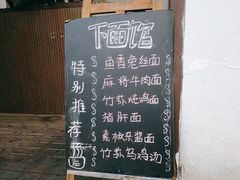 下面馆
特别推荐
鱼香兔丝面
麻将牛肉面
竹荪炖鸡面
猪肝面
素椒杂酱面
竹荪乌鸡汤